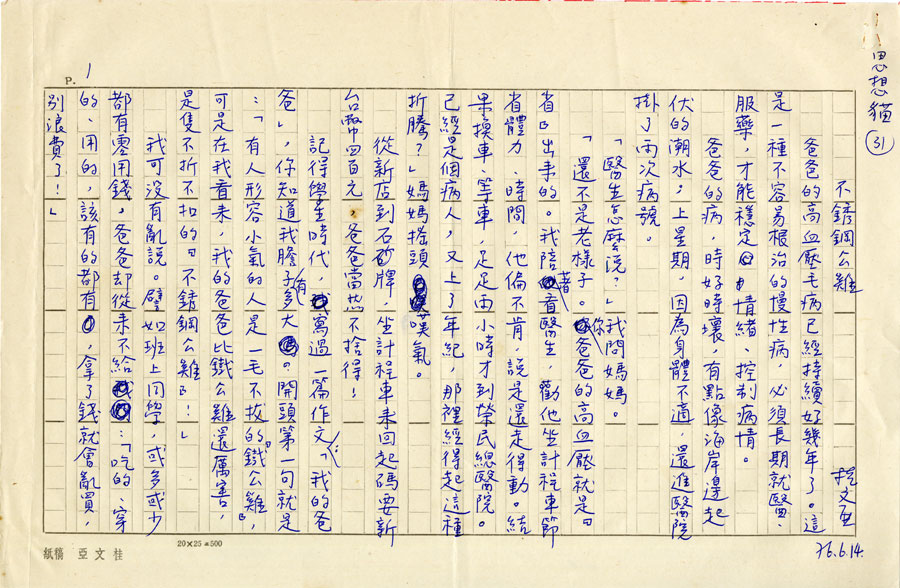 思想貓 ㉛
不銹鋼公雞
桂文亞
爸爸的高血壓毛病已經持續好幾年了。這
是一種不容易根治的慢性病，必須長期就醫、
服藥，才能穩定情緒、控制病情。
爸爸的病，時好時壞，有點像海岸邊起
伏的潮水，上星期，因為身體不適，還進醫院
掛了兩次病號。
「醫生怎麼說？」我問媽媽。
「還不是老樣子。你爸爸的高血壓就是
省出來的。我陪著看醫生，勸他坐計程車節
省體力、時間，他偏不肯，說是還走得動。結
果換車、等車，足足兩小時才到榮民總醫院。
已經是個病人，又上了年紀，那裡經得起這種
折騰？」媽媽搖頭嘆氣。
從新店到石牌，坐計程車來回起碼要新
台幣四百元，爸爸當然不捨得！
記得學生時代，寫過一篇作文「我的爸
爸」，你知道我膽子有多大。開頭第一句就是
：「有人形容小氣的人是一毛不拔的『鐵公雞』，
可是在我看來，我的爸爸比鐵公雞還厲害，
是隻不折不扣的『不銹鋼公雞』！」
我可沒有亂說。譬如班上同學，或多或少
都有零用錢，爸爸却從來不給：「吃的、穿
的、用的，該有的都有，拿了錢就會亂買，
別浪費了！」
P. 1
20×25＝500
桂文亞稿紙
76.6.14.